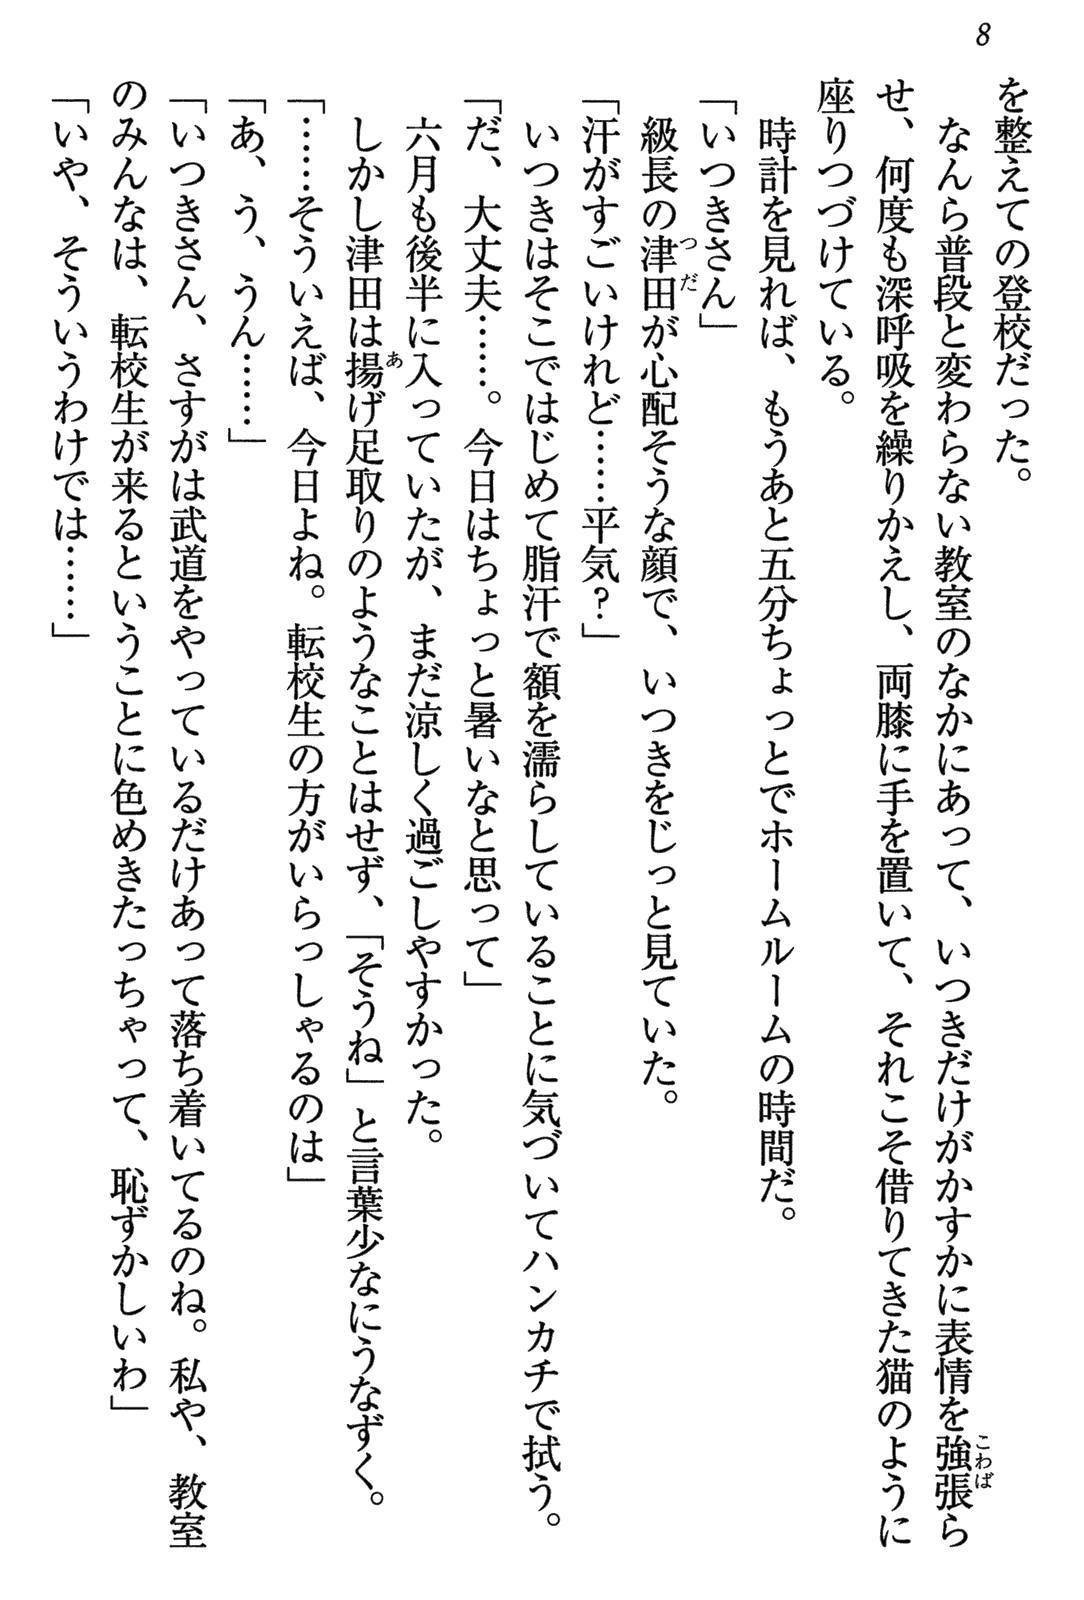 8
を整えての登校だった。
なんら普段と変わらない教室のなかにあって、いつきだけがかすかに表情を強張ら
せ、何度も深呼吸を繰りかえし、両膝に手を置いて、それこそ借りてきた猫のように
座りつづけている。
時計を見れば、もうあと五分ちょっとでホームルームの時間だ。
「いつきさん」
級長の津田が心配そうな顔で、いつきをじっと見ていた。
「汗がすごいけれど……平気？」
いつきはそこではじめて脂汗で額を濡らしていることに気づいてハンカチで拭う。
「だ、大丈夫……。今日はちょっと暑いなと思って」
六月も後半に入っていたが、まだ涼しく過ごしやすかった。
しかし津田は揚げ足取りのようなことはせず、「そうね」と言葉少なにうなずく。
「……そういえば、今日よね。転校生の方がいらっしゃるのは」
「あ、う、うん……」
「いつきさん、さすがは武道をやっているだけあって落ち着いてるのね。私や、教室
のみんなは、転校生が来るということに色めきたっちゃって、恥ずかしいわ」
「いや、そういうわけでは……」
こわば
つだ
あ